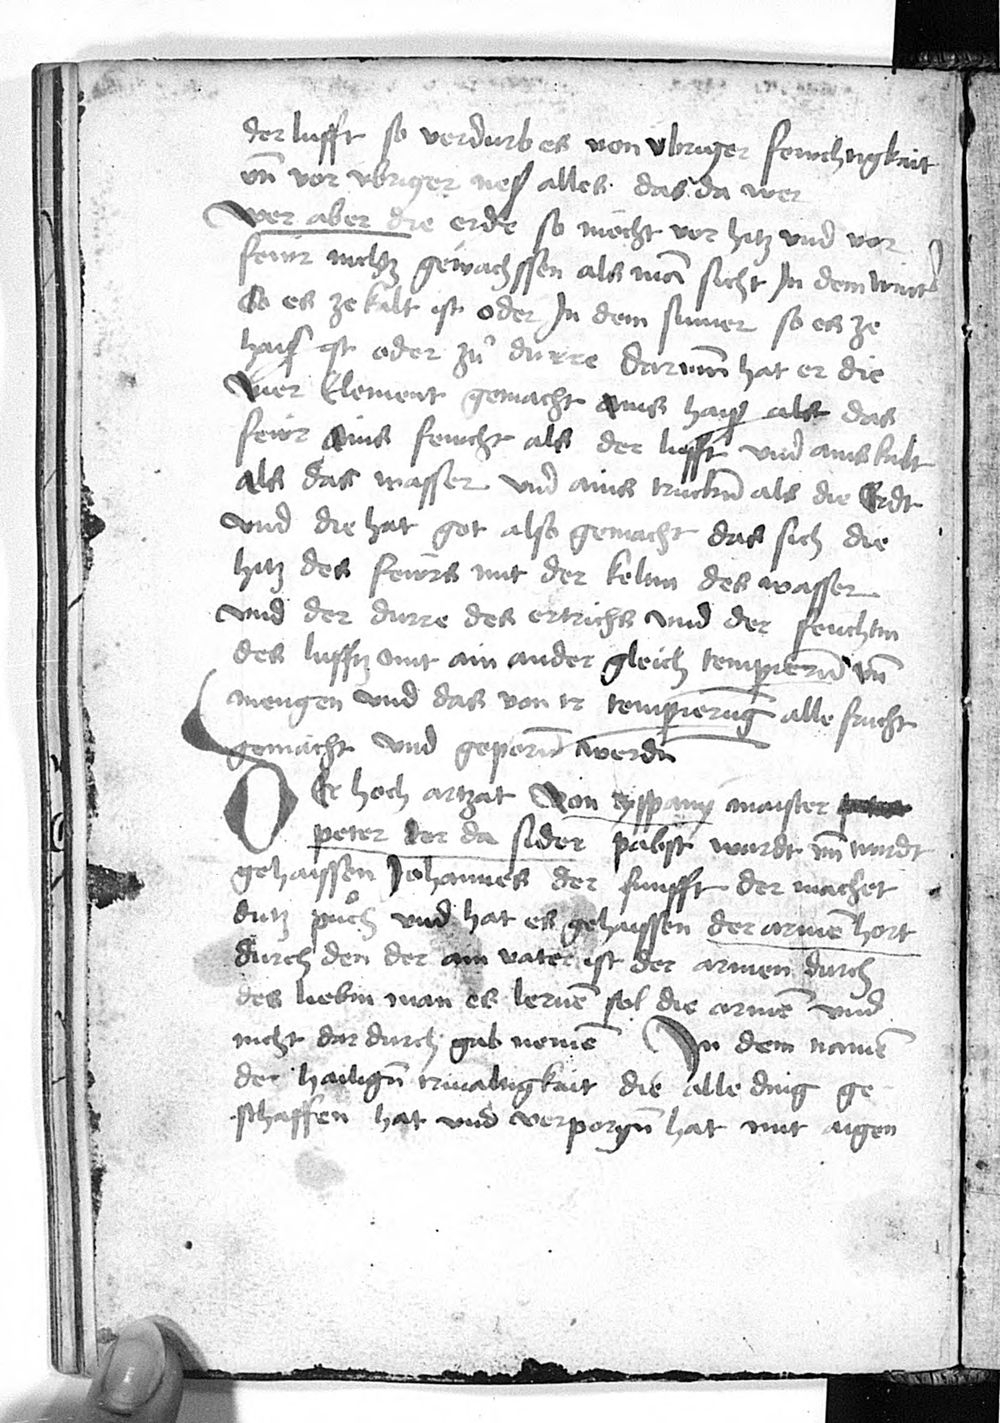 der lufft so verdurb es von vbriger feuchtigkait
vn̄ vor vbriger nes alles das da wer
Wer aber die erde so möcht vor hitz vnd vor
fewr nichtz gewachssen als mā sicht In dem wint͛
So es ze kalt ist oder In dem sumer so es ze
hais ist oder zů durre darum̄ hat er die
Vier Element gemacht ains hays als das
fewr ains feucht als der lufft vnd ains kalt
als das wasser vnd ains truckn̄ als die Erdt
vnd die hat got also gemacht das sich die
hitz des fewrs mit der keltin des wasser
vnd der durre des ertrichs vnd der feuchtin
des lufftz mit ain ander gleich temperiern̄ vn̄
mengen vnd das von ir temperierūg alle frücht
gemacht vnd geporn̄ werdn
DEr hoch artzat Von yspany maister
peter der da sider pabst wardt vn̄ wardt
gehaissen Johannes der funfft der machet
ditz půch vnd hat es gehaissen der armē hort
durch den der ain vater ist der armen durch
des liebin man es lernē sol die armē vnd
nicht dar durch gab nemē In dem namē
der hailign̄ triualtigkait die alle ding ge
schaffen hat vnd verporgn̄ hat mit aigen